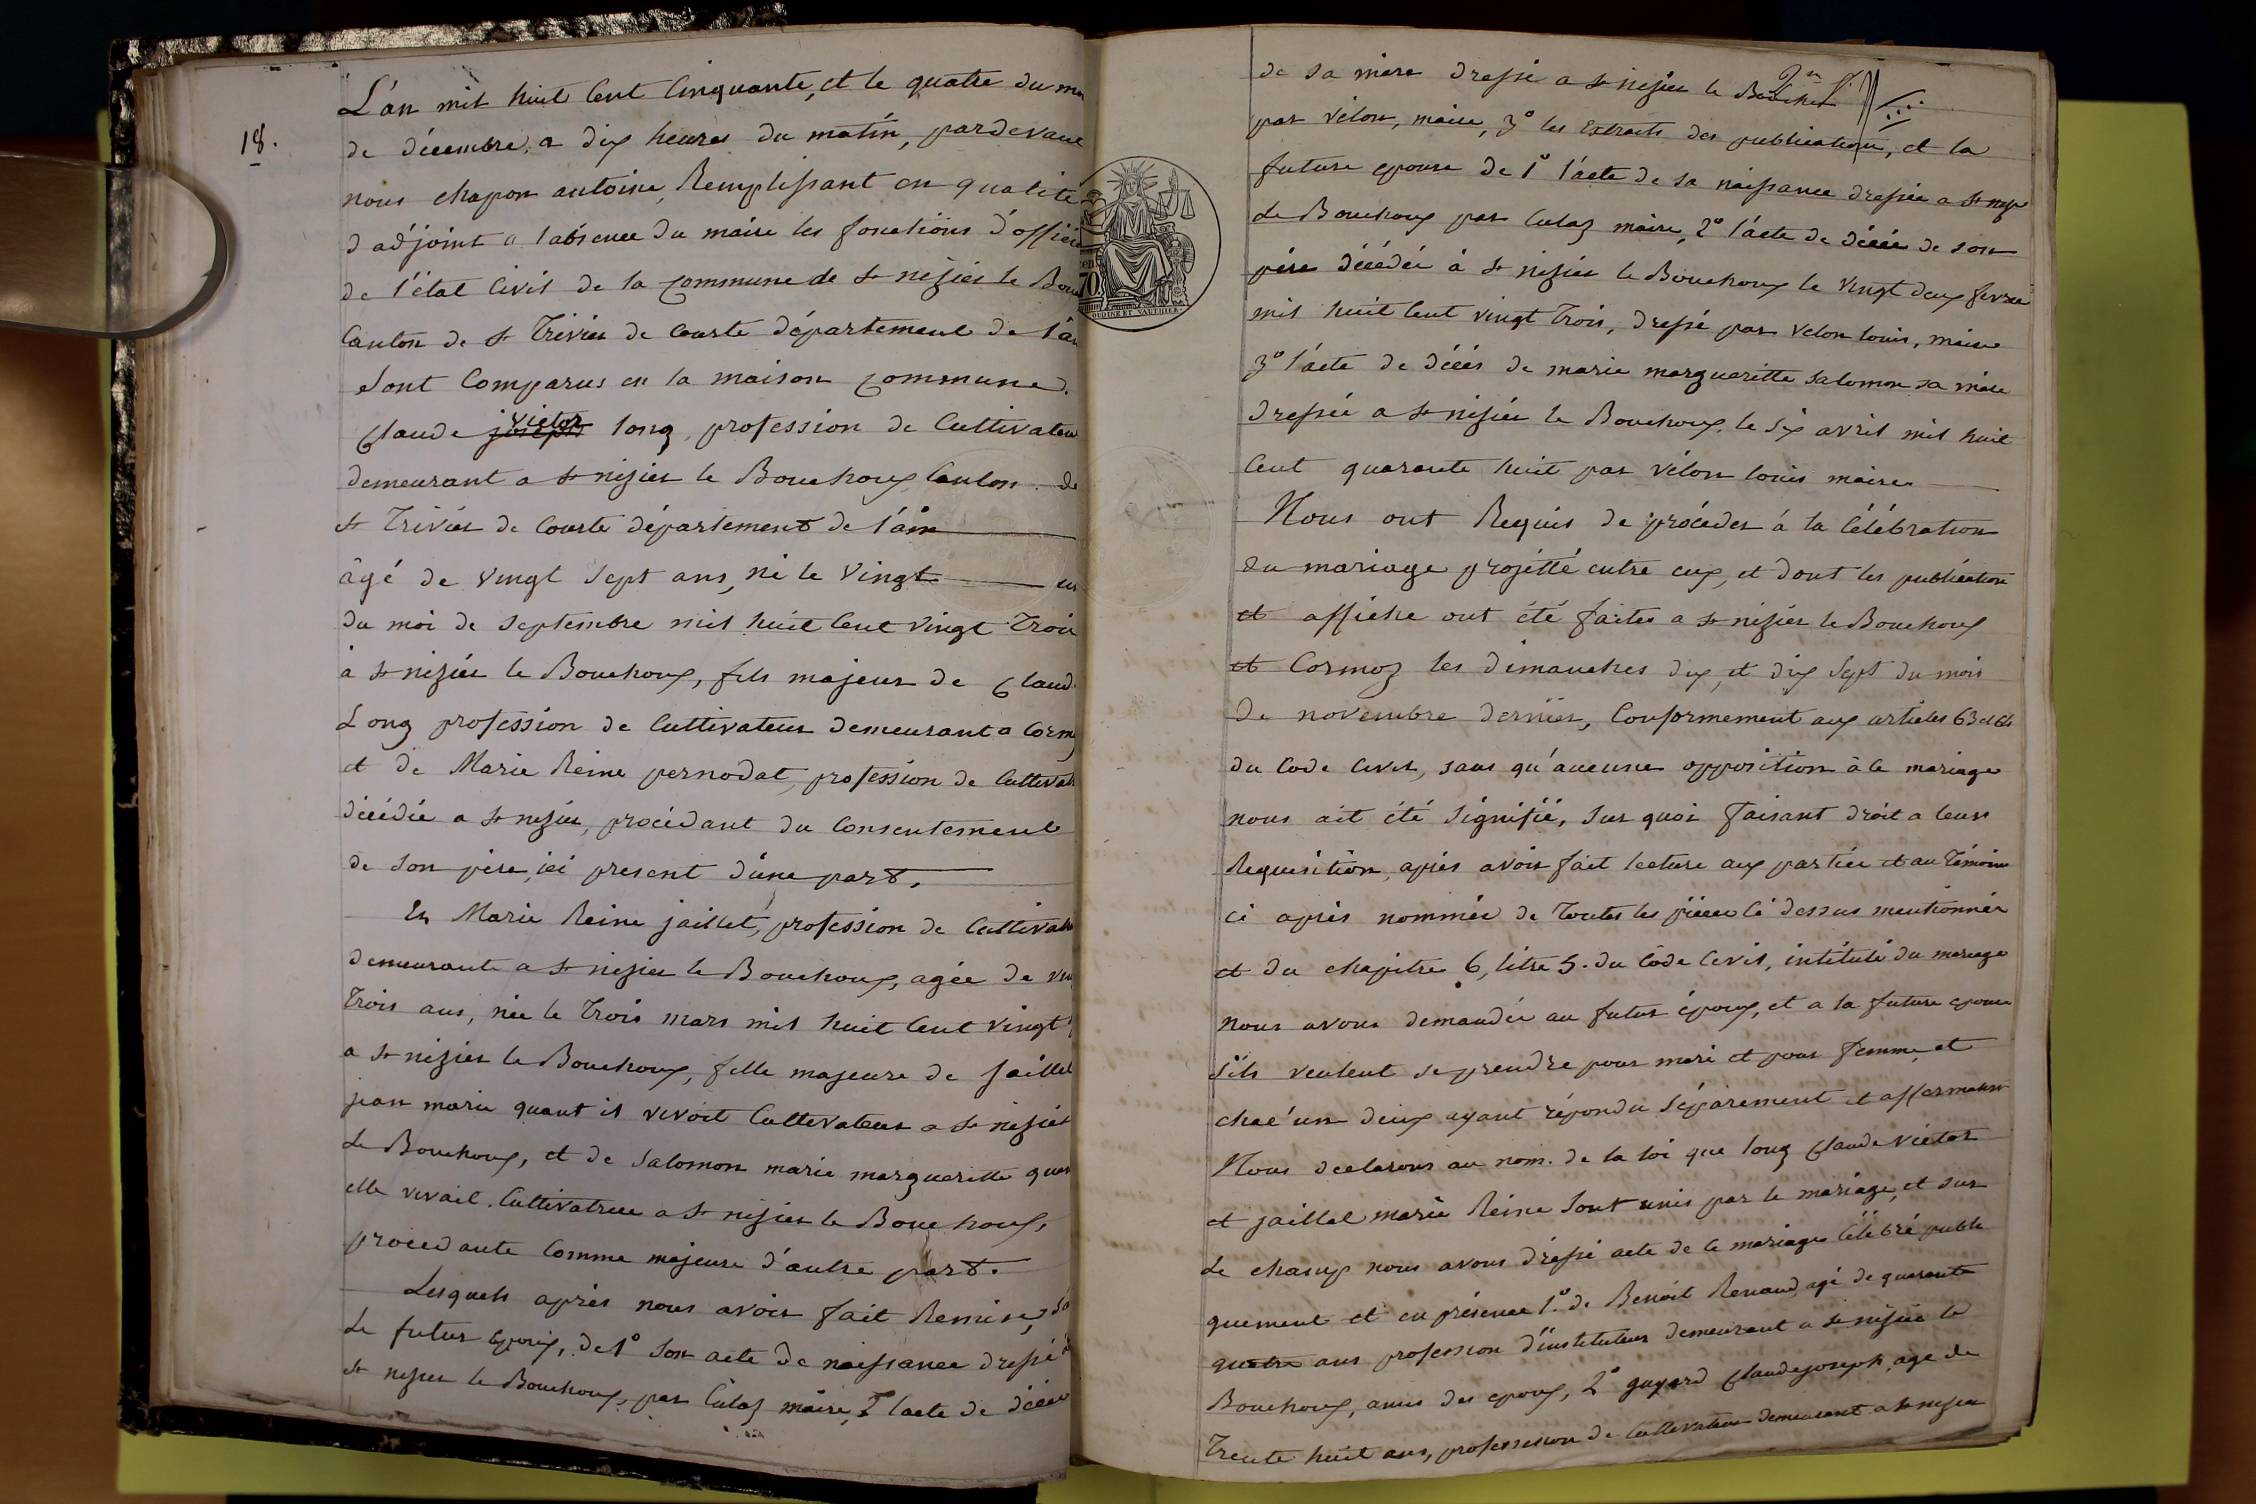 18.
L'an mil huit cent cinquante, et le quatre du
de décembre, a dix heures du matin, pardevant
nous chapon antoine, Remplissant en qualité
d'adjoint a l'absence du maire les fonctions d'offici
de l'état civil de la commune de st nizier le Bou
Canton de st Trivier de Courte département de l'ai
sont comparus en la maison commune.
victor
Claude joseph long, profession de Cultivateu
demeurant a st nizier le Bouchoux Canton de
st Trivier de Courte département de l'ain
âgé de vingt sept ans, né le vingt un
du moi de septembre mil huit cent vingt trois
à st nizier le Bouchoux, fils majeur de Claud
Long profession de Cultivateur demeurant a Corm
et de Marie Reine pernodat, profession de Cultivat
décédée a st nizier, procédant du consentement
de son père, ici present d'une part.
Et Marie Reine jaillet, profession de Cultivat
demeurante a st nizier le Bouchoux, agée de vin
trois ans, née le trois mars mil huit cent vingt
a st nizier le Bouchoux, fille majeure de jaillet
jean marie quant il vivoit Cultivateur a st nizier
Le Bouchoux, et de Salomon marie margueritte quan
elle vivait. Cultivatrice a st nizier le Bouchoux,
procedante Comme majeure d'autre part.
Lesquels après nous avoir fait Remise,
Le futur epoux, de 1° son acte de naissance dressé
st nizier le Bouchoux, par Culaz maire, 2 l'acte de décée
OUDINE ET VAUTHIER
70
de sa mère dressé a st nizier le
par vélon, maire, 3° les Extraits des publication, et la
future epouse de 1° l'acte de sa naissance dressée a st nizi
Le Bouchoux par Culaz maire, 2° l'acte de décée de son
père décédée à st nizier le Bouchoux le vingt deux fevrie
mil huit cent vingt trois, dressé par velon louis, maire
3° l'acte de décés de marie margueritte Salomon sa mère
dressée a st nizier le Bouchoux, le six avril mil huit
Cent quarante huit par vélon louis maire
Nous ont Requis de procéder à la Célébration
du mariage projetté entre eux, et dont les publication
et affiche ont été faites a st nizier le Bouchoux
et Cormoz les dimanches dix, et dix sept du mois
de novembre dernier, Conformement aux articles 63 et 64
du Code civil, sans qu'aucune opposition à ce mariage
nous ait été signifié, sur quoi faisant droit a leur
Requisition, après avoir fait lecture aux partiée et au témoins
ci après nommée de toutes les pièces ci dessus mentionnée
et du chapitre 6, titre 5. du Code Civil, intitulé du mariage
nous avons demandée au futur époux, et a la future epouse
s'ils veulent se prendre pour mari et pour femme, et
chac'un deux ayant répondu séparement et affirmativ
Nous declarons au nom de la loi que long Claude victor
et jaillet marie Reine sont unis par le mariage, et sur
Le champ nous avons dréssé acte de ce mariage célébré publi
quement et en présence 1° de Benoit Renaud, agé de quarante
quatre ans profession d'instituteur demeurant a st nizier le
Bouchoux, amis des epoux, 2° guyard Claude joseph, age de
Trente huit ans, profession de Cultivateur demeurant a st nizier